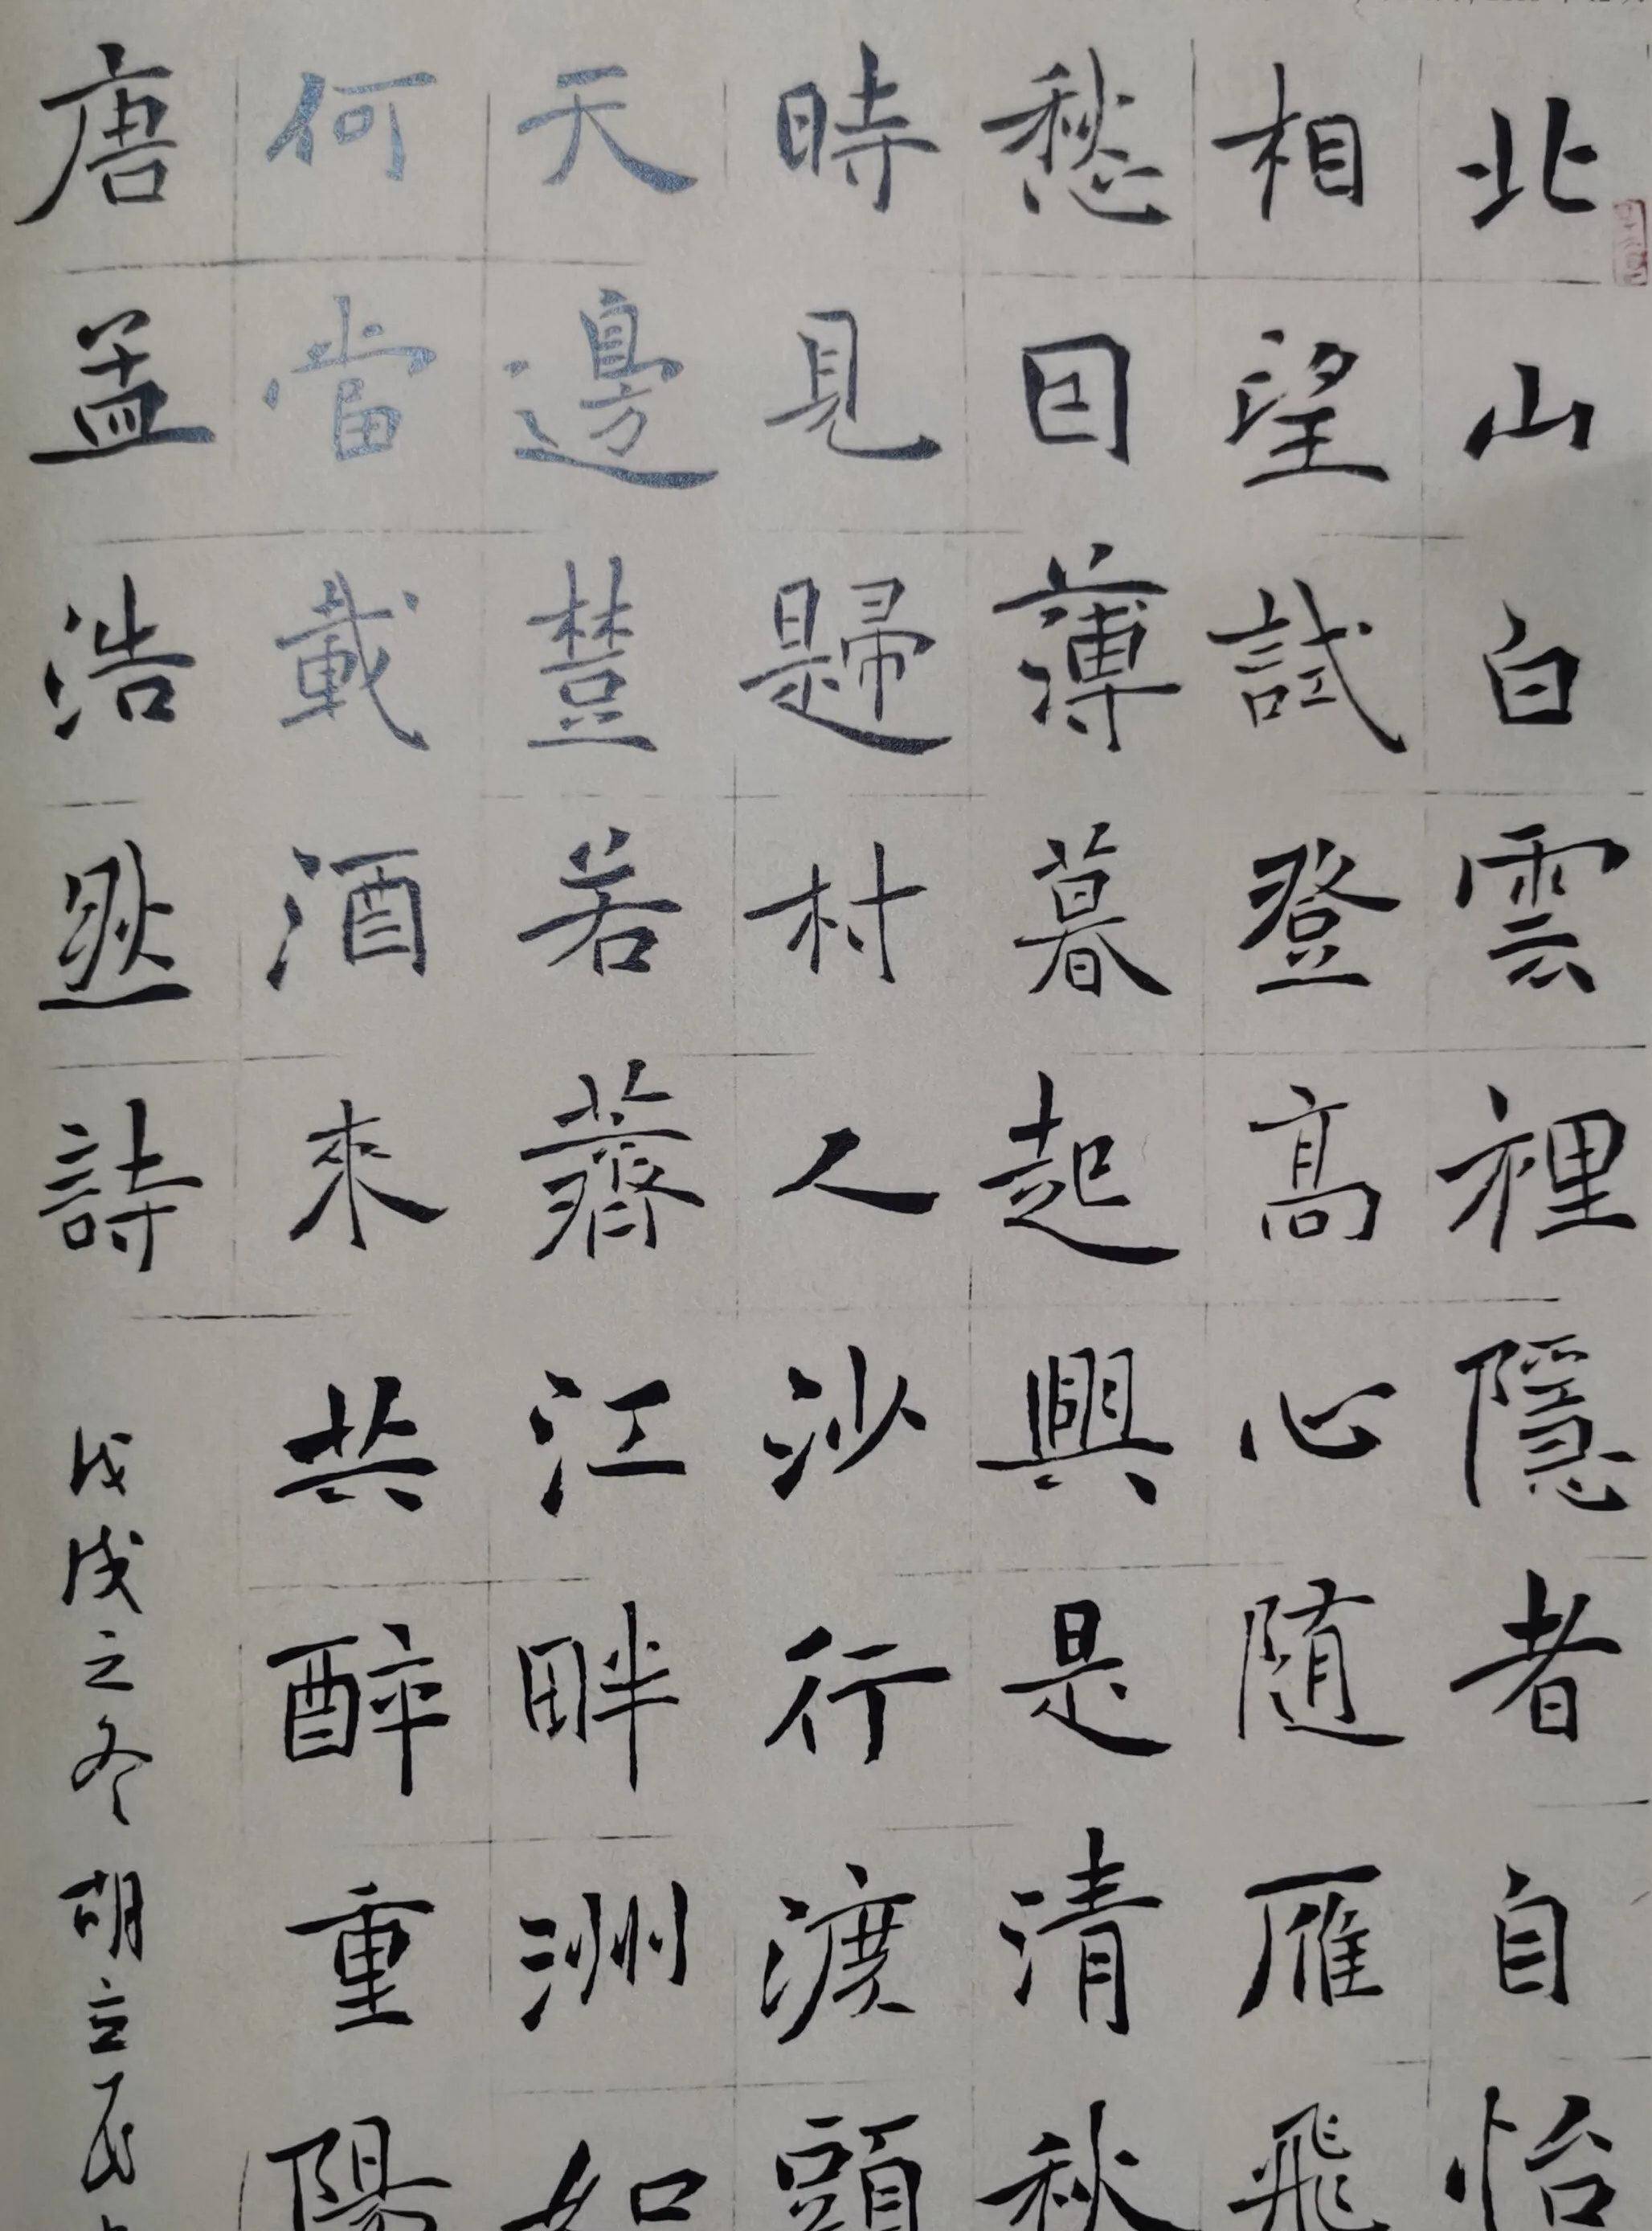 北山白雲裡隱者自怡
相望試登高心随雁飛
愁因薄暮起興是清秋
時見歸村人沙行渡頭
天邊樹若薺江畔洲如
何當載酒來共醉重陽
唐孟浩然詩 戊戌之冬胡立民